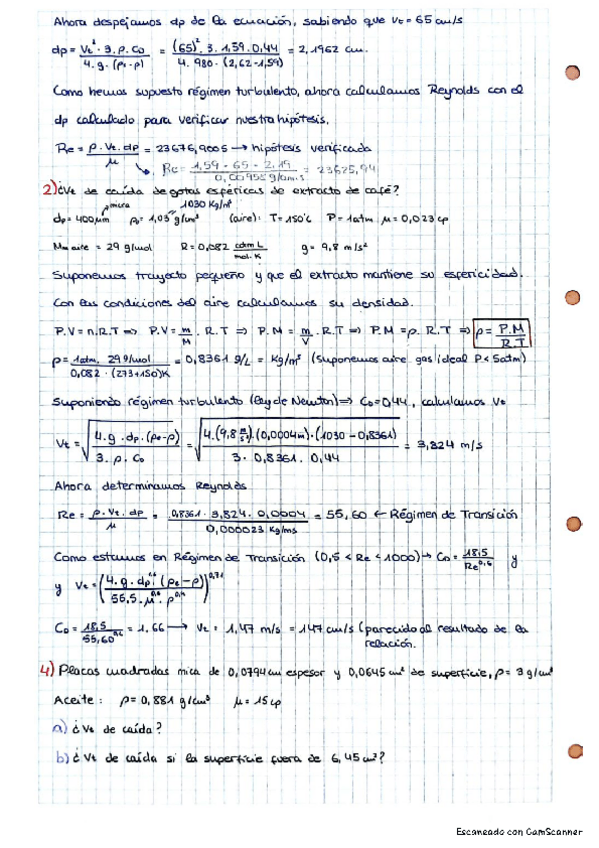 Ahora despejamos dp de la ecuación, sabiendo que Vt = 65 cm/s
dp = Vt² · 3 · ρ · C₀ / 4 · g · (ρe - ρ) = (65)² · 3 · 1,59 · 0,44 / 4 · 980 · (2,62 - 1,59) = 2,1962 cm.
Como hemos supuesto régimen turbulento, ahora calculamos Reynolds con el
dp calculado para verificar nuestra hipótesis.
Re = ρ · Vt · dp / μ = 23676,9005 → hipótesis verificada
Re = 1,59 · 65 · 2,19 / 0,00955 g/cm·s = 23625,94
2) ¿Vt de caída de gotas esféricas de extracto de café?
micra 1030 Kg/m³
dp = 400 μm ρe = 1,03 g/cm³ (aire): T = 150°C P = 1atm μ = 0,023 cp
Mm aire = 29 g/mol R = 0,082 atm L / mol · K g = 9,8 m/s²
Suponemos trayecto pequeño y que el extracto mantiene su esfericidad.
Con las condiciones del aire calculamos su densidad.
P.V = n.R.T ⇒ P.V = m/M . R.T ⇒ P.M = m/V . R.T ⇒ P.M = ρ. R.T ⇒ ρ = P.M / R.T
ρ = 1atm. 29 g/mol / 0,082 · (273+150)K = 0,8361 g/L = Kg/m³ (Suponemos aire gas ideal P < 5atm)
Suponiendo régimen turbulento (Ley de Newton) ⇒ C₀ = 0,44, calculamos Vt
Vt = √(4 · g · dp · (ρe - ρ) / 3 · ρ · C₀) = √(4 · (9,8 m/s²) · (0,0004m) · (1030 - 0,8361) / 3 · 0,8361 · 0,44) = 3,824 m/s
Ahora determinamos Reynolds
Re = ρ · Vt · dp / μ = 0,8361 · 3,824 · 0,0004 / 0,000023 Kg/ms = 55,60 ← Régimen de Transición
Como estamos en Régimen de Transición (0,5 < Re < 1000) → C₀ = 18,5 / Re^0,6 y
y Vt = (4 · g · dp^1,6 · (ρe - ρ) / 55,5 · μ^0,6 · ρ^0,4)^0,71
C₀ = 18,5 / 55,60^0,6 = 1,66 → Vt = 1,47 m/s = 147 cm/s (parecido al resultado de la
relación.
4) Placas cuadradas mica de 0,0794 cm espesor y 0,0645 cm² de superficie, ρ = 3 g/cm³
Aceite: ρ = 0,881 g/cm³ μ = 15 cp
a) ¿Vt de caída?
b) ¿Vt de caída si la superficie fuera de 6,45 cm²?
Escaneado con CamScanner